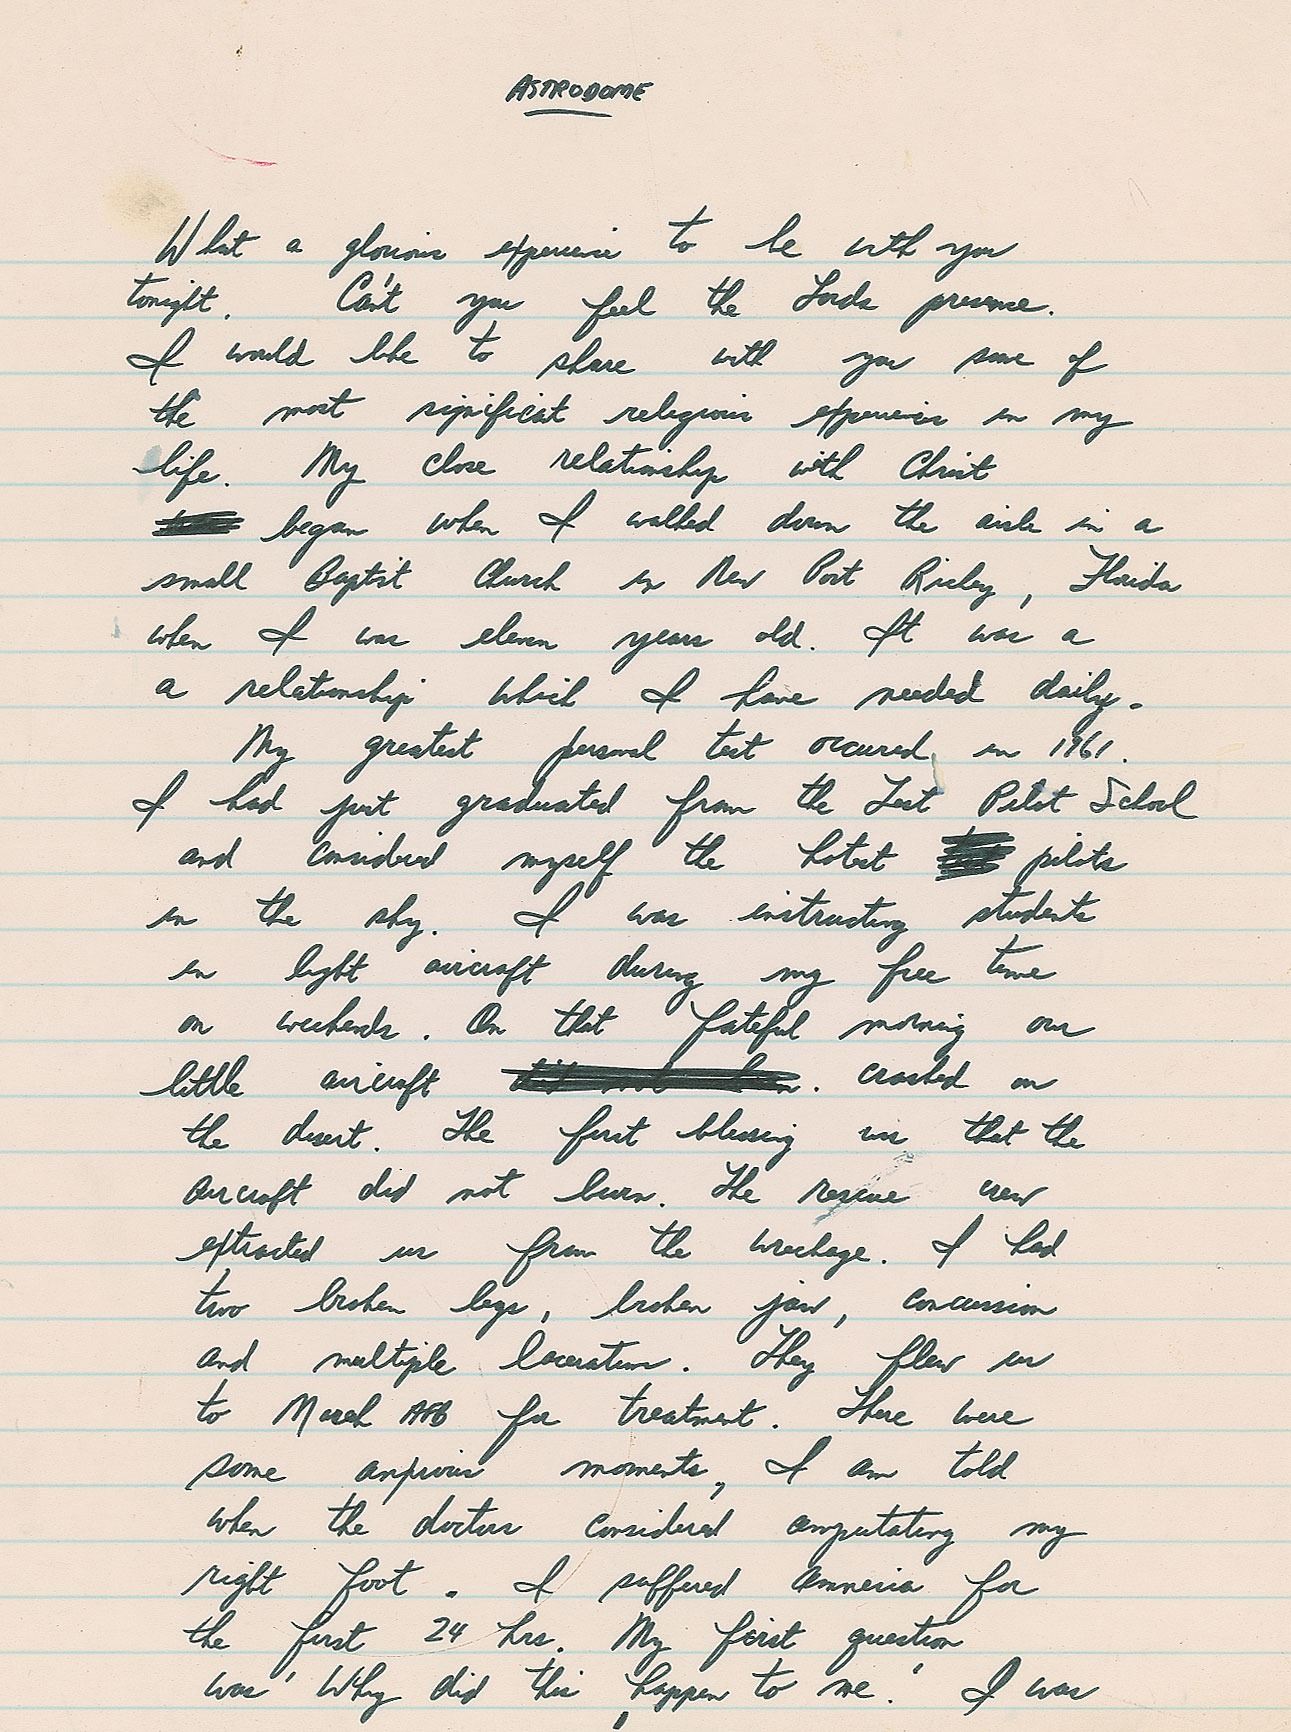 ASTRODOME
What a glorious experience to be with you
tonight. Can't you feel the Lords presence.
I would like to share with you some of
the most significat religious experiences in my
life. My close relationship with Christ
began when I walked down the aisle in a
small Baptist Church in New Port Richy, Florida
when I was eleven years old. It was a
a relationship which I have needed daily.
My greatest personal test occured in 1961.
I had just graduated from the Test Pilot School
and considered myself the hotest pilots
in the sky. I was instructing students
in light aircraft during my free time
on weekends. On that fateful morning our
little aircraft . crashed on
the desert. The first blessing was that the
aircraft did not burn. The rescue crew
extracted us from the wreckage. I had
two broken legs, broken jaw, concussion
and multiple lacerations. They flew us
to March AFB for treatment. There were
some anxious moments, I am told
when the doctors considered amputating my
right foot. I suffered amnesia for
the first 24 hrs. My first question
was "Why did this happen to me." I was